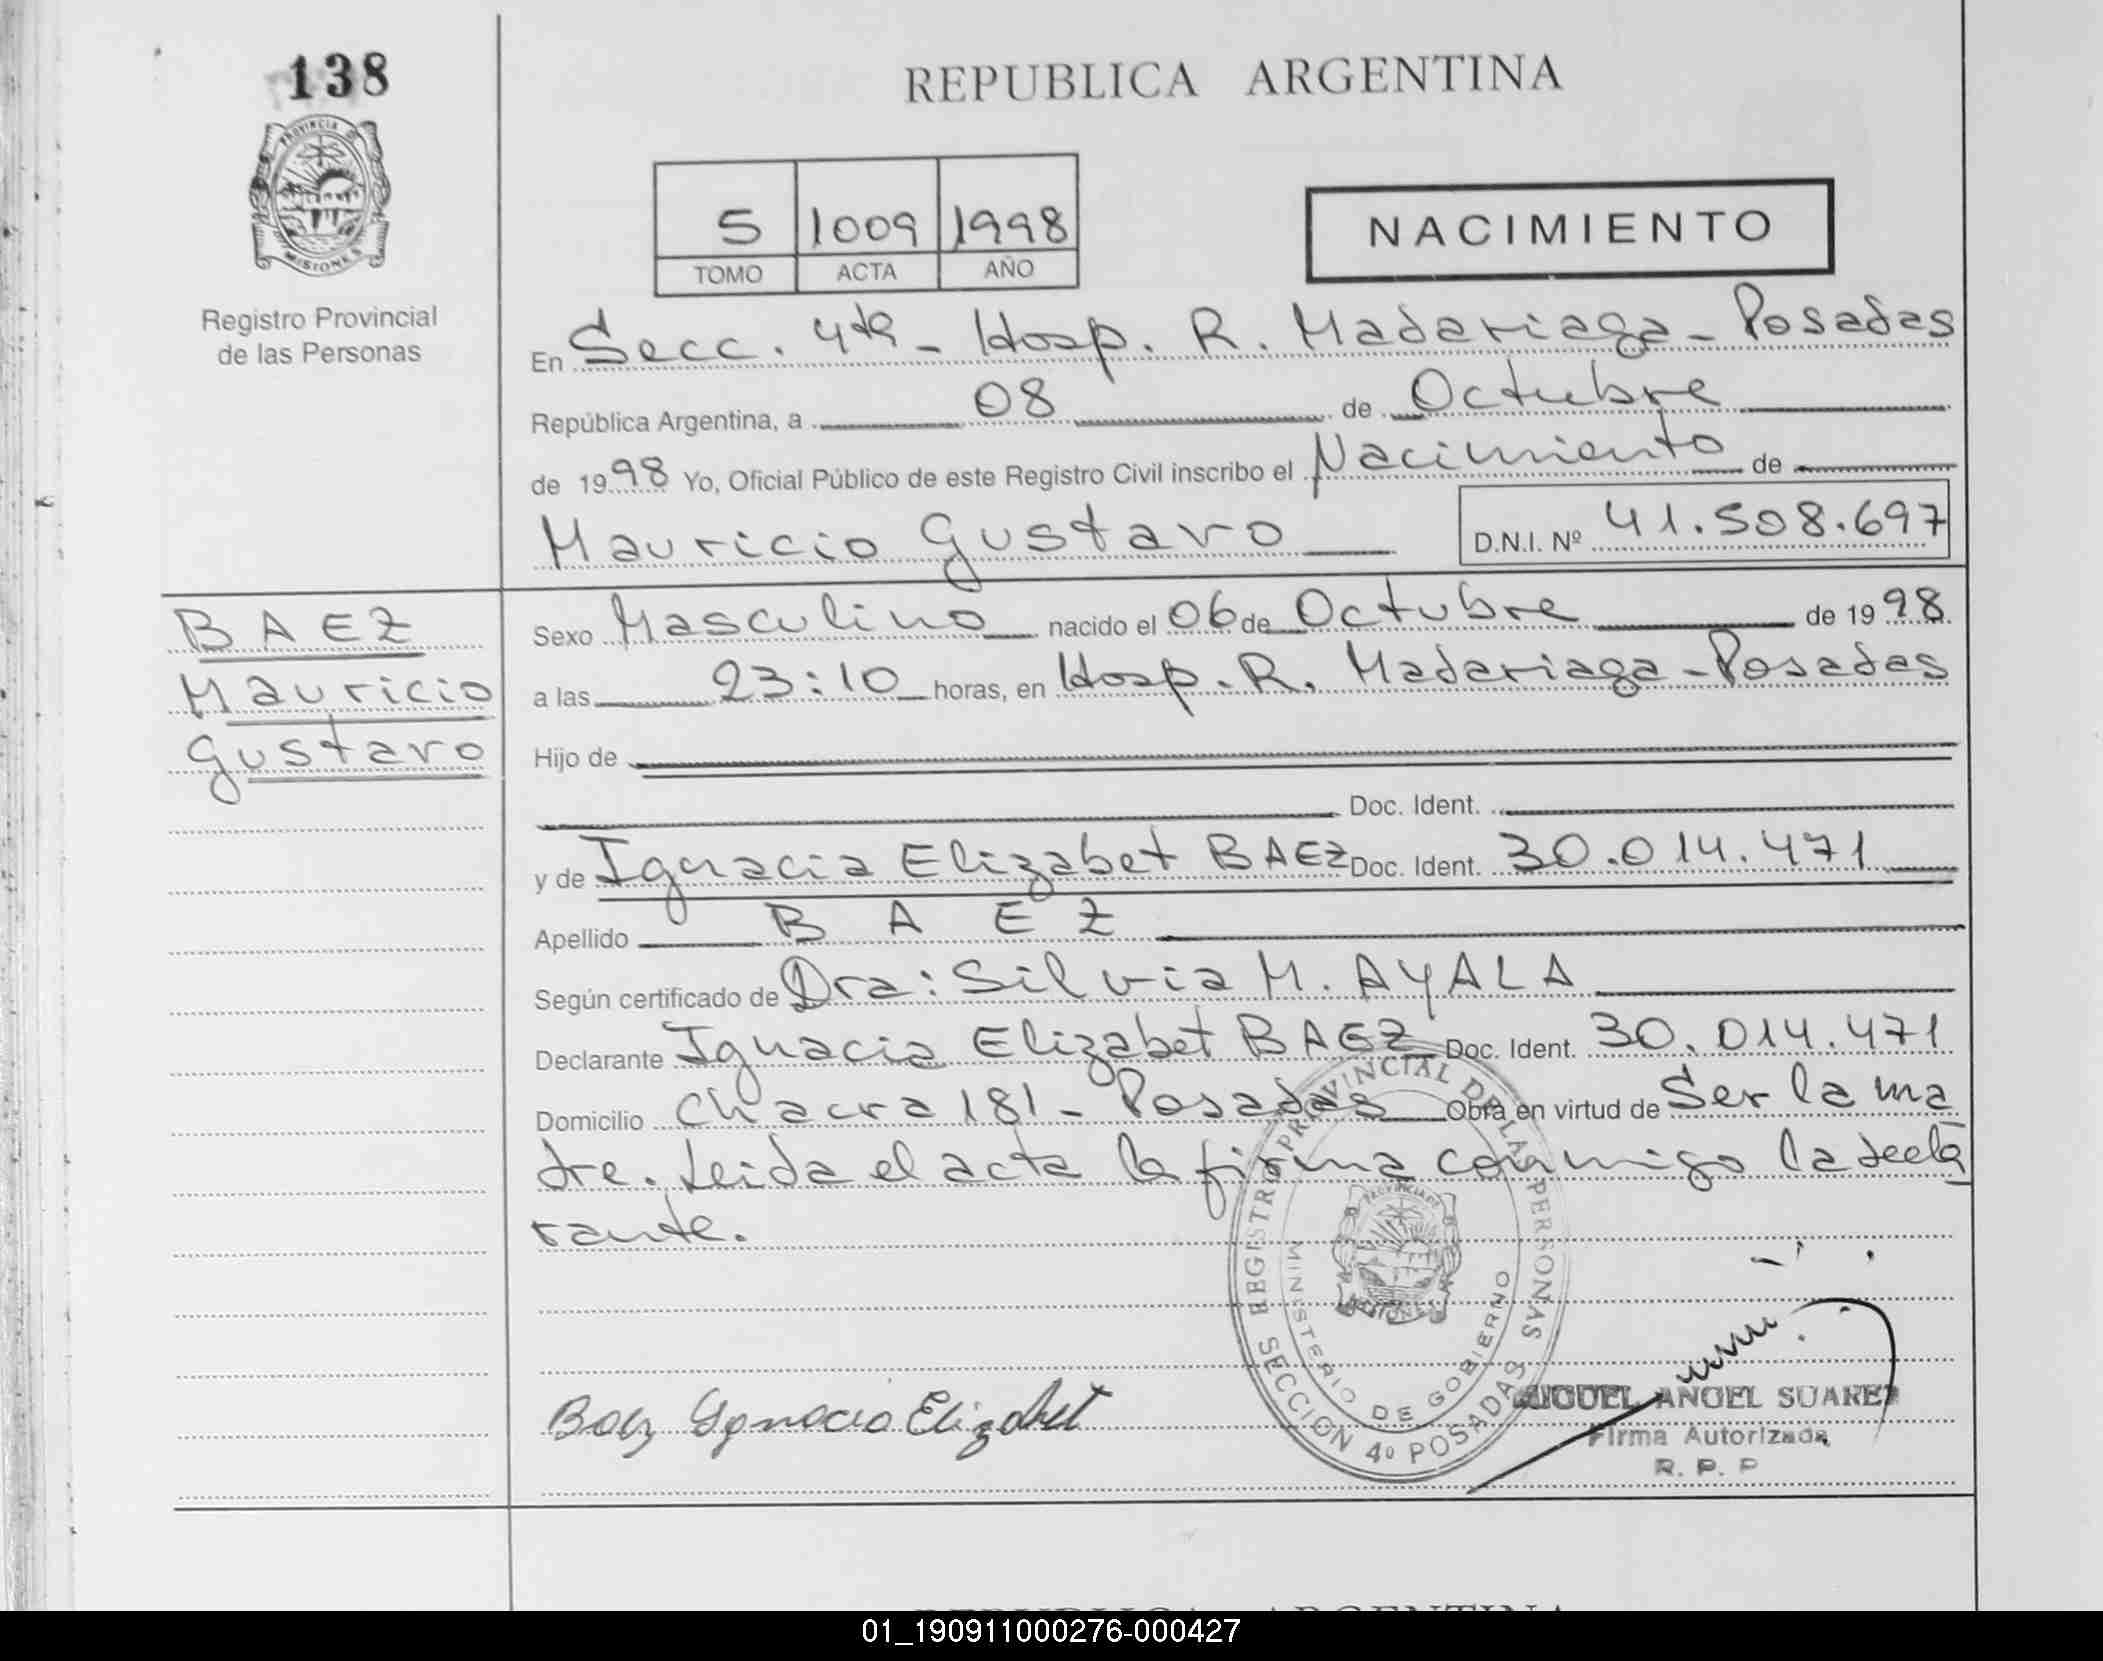 138
PROVINCIA DE
MISIONES
Registro Provincial
de las Personas
REPUBLICA ARGENTINA
5 1009 1998
TOMO ACTA AÑO
NACIMIENTO
En Secc. 4ta - Hosp. R. Madariaga - Posadas
República Argentina, a 08 de Octubre
de 1998 Yo, Oficial Público de este Registro Civil inscribo el Nacimiento de
Mauricio Gustavo D.N.I. Nº 41.508.697
BAEZ
Mauricio
Gustavo
Sexo Masculino nacido el 06 de Octubre de 1998
a las 23:10 horas, en Hosp. R. Madariaga - Posadas
Hijo de
Doc. Ident.
y de Ignacia Elizabet BAEZ Doc. Ident. 30.014.471
Apellido BAEZ
Según certificado de Dra: Silvia M. AYALA
Declarante Ignacia Elizabet BAEZ Doc. Ident. 30.014.471
Domicilio Chacra 181 - Posadas Obra en virtud de Ser la ma
dre. Leida el acta la firma conmigo la decla
rante.
REGISTRO PROVINCIAL DE LAS PERSONAS
MINISTERIO DE GOBIERNO
SECCION 4º POSADAS
Baez Ignacia Elizabet
MIGUEL ANGEL SUAREZ
Firma Autorizada
R. P. P
REPUBLICA ARGENTINA
01_190911000276-000427